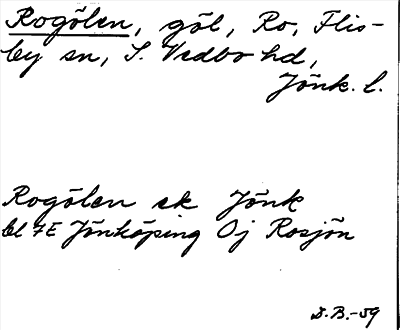 Rogölen, göl, Ro, Flis-
by sn, S. Vedbo hd,
Jönk. l.
Rogölen ek Jönk
bl 7E Jönköping Oj Rosjön
S.B.-59